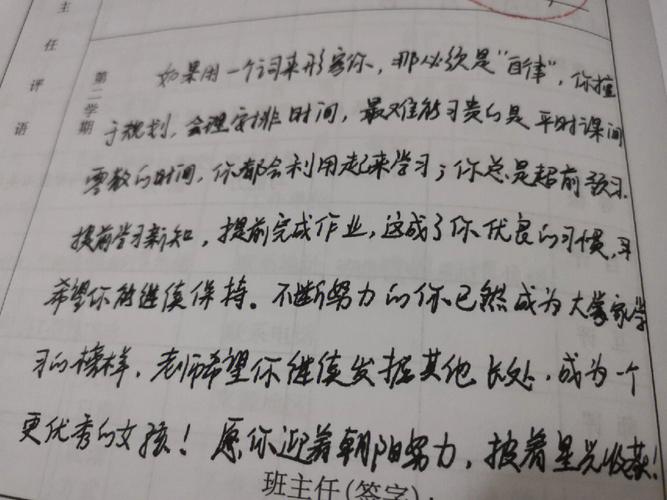 主任评语
第二学期
如果用一个词来形容你，那必须是“自律”，你擅
于规划，合理安排时间，最难能可贵的是平时课间
零散的时间，你都会利用起来学习；你总是超前预习
提前学习新知，提前完成作业，这成了你优良的习惯，
希望你能继续保持。不断努力的你已然成为大家学
习的榜样，老师希望你继续发掘其他长处，成为一个
更优秀的女孩！愿你迎着朝阳努力，披着星光收获！
班主任(签字)：